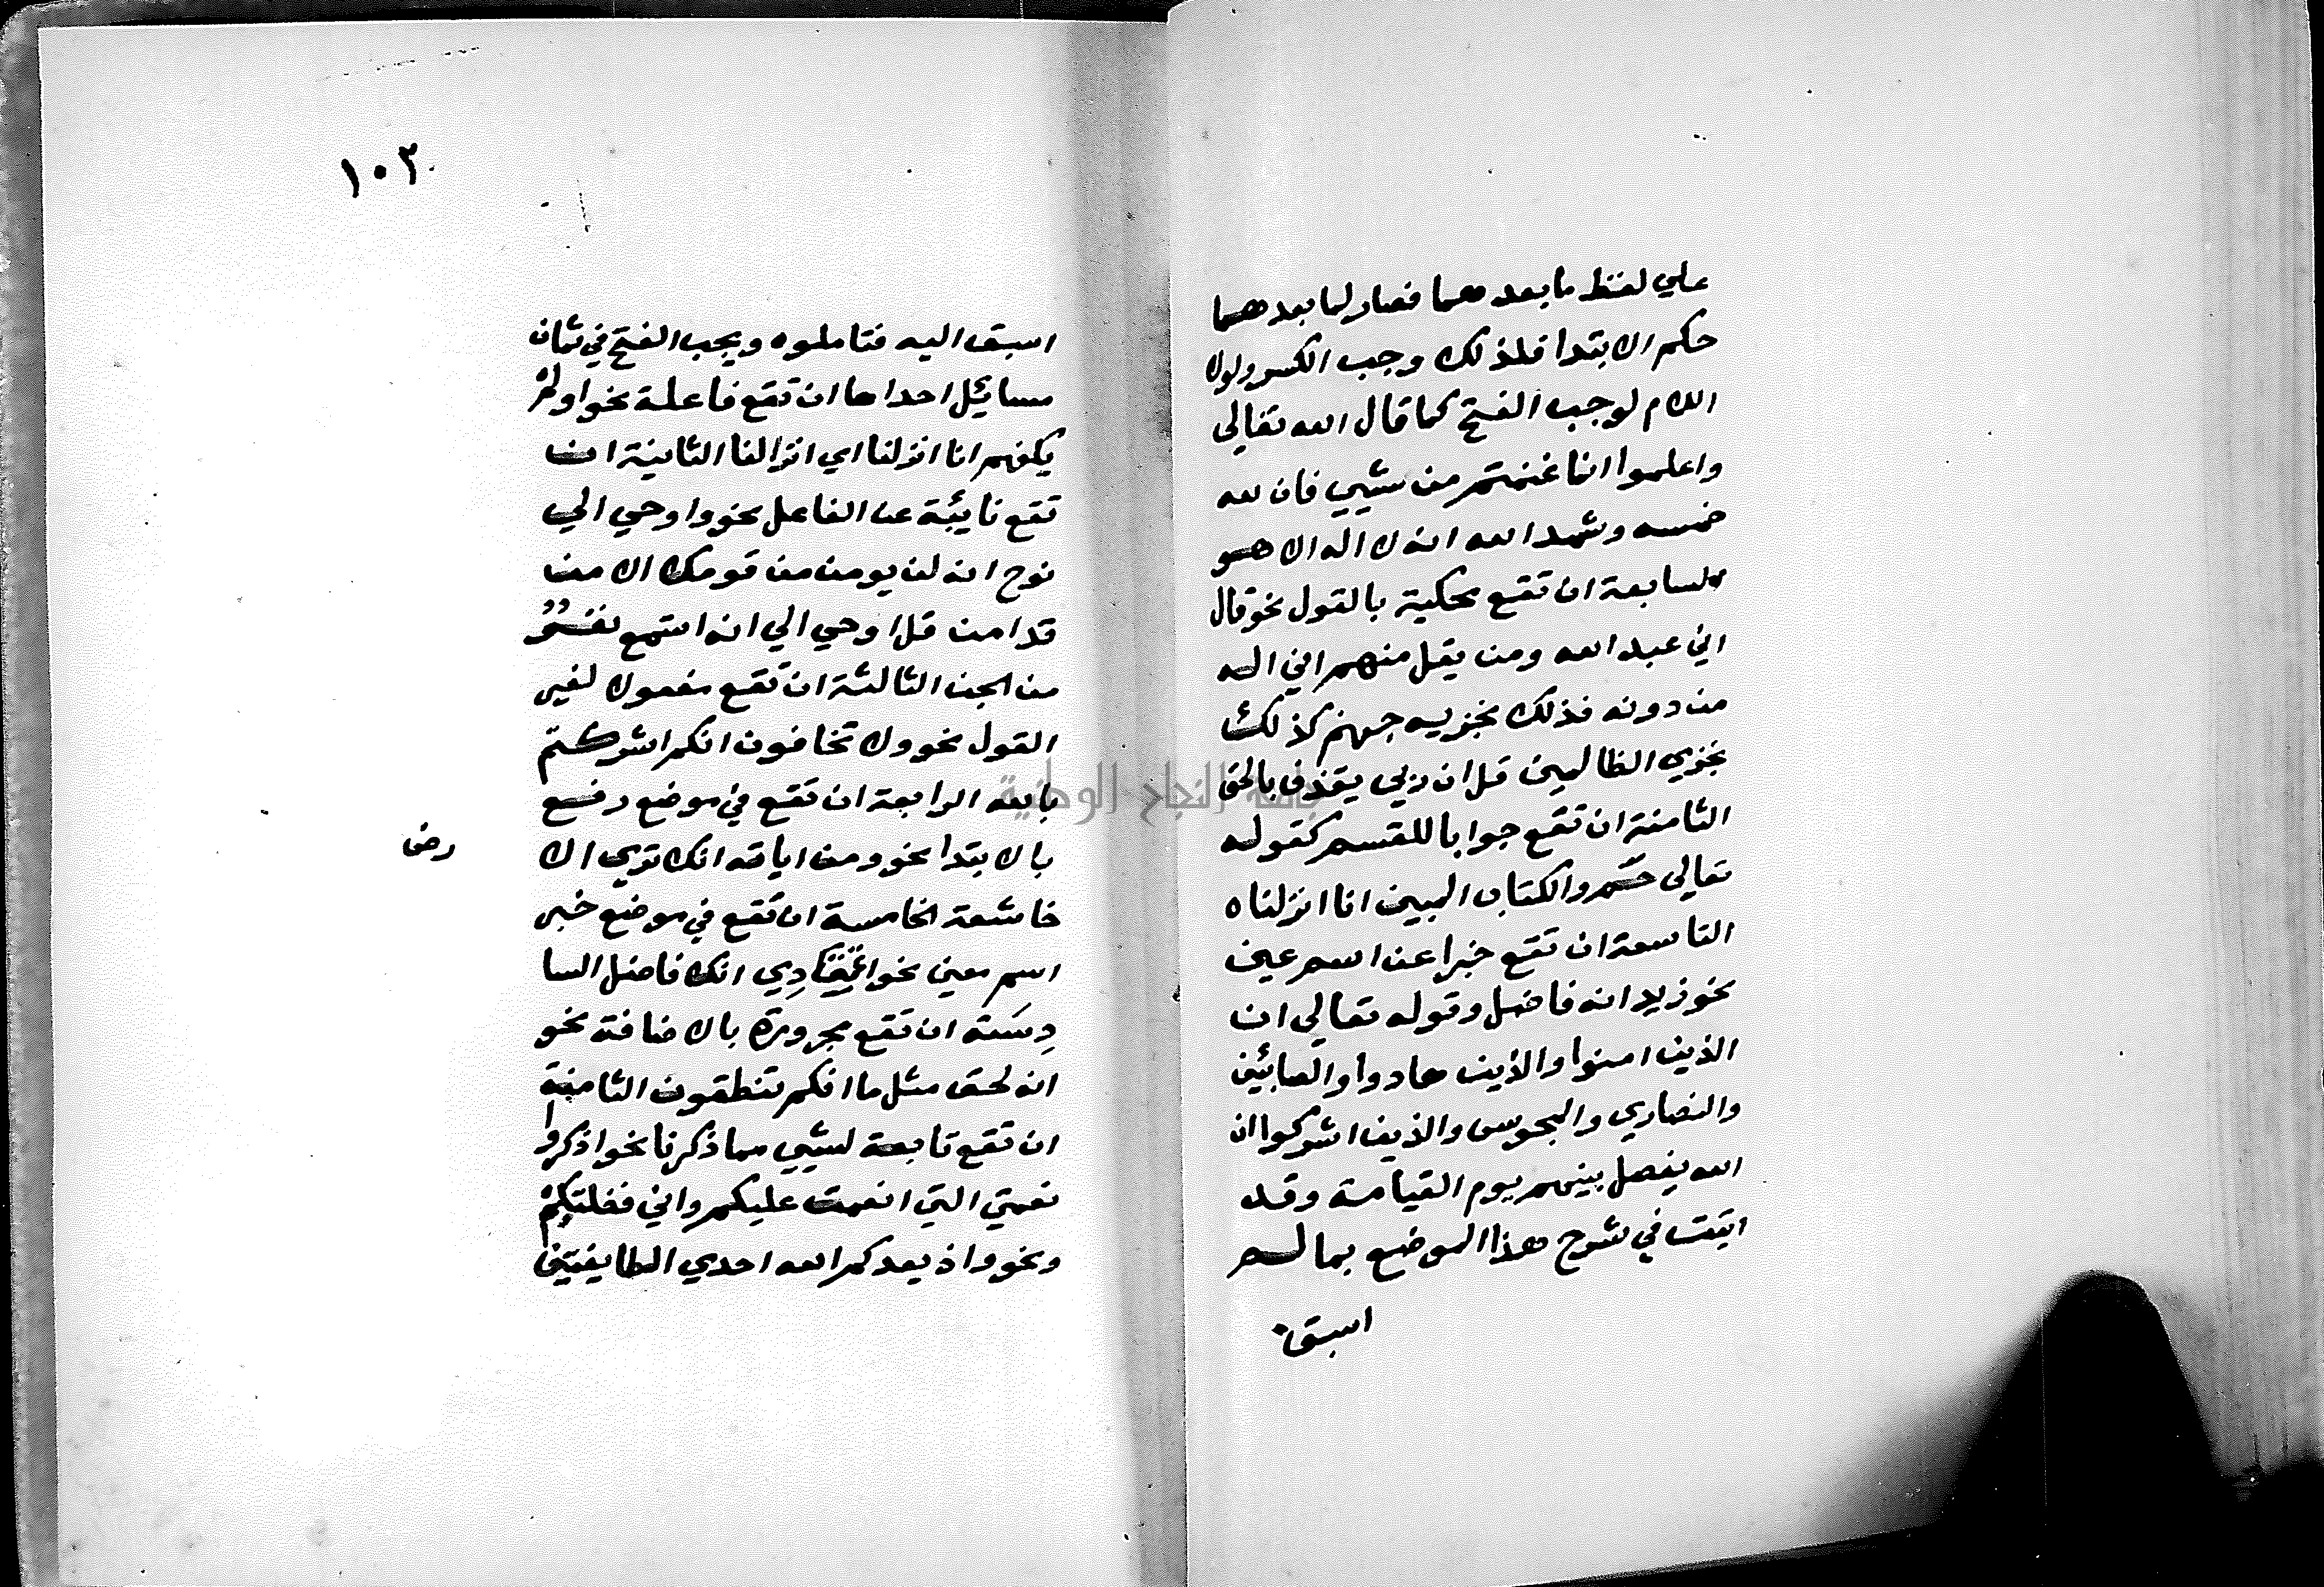 علي لفظ ما بعد هما فصار لما بعد هما
حكم الابتدا فلذلك وجب الكسر ولولا
اللام لوجب الفتح كما قال الله تعالي
واعلموا انما غنمتم من شيي فان لله
خمسه وشهد الله انه لا اله الا هو
السابعة ان تقع محكية بالقول نحو قال
اني عبد الله ومن يقل منهم اني اله
من دونه فذلك نجزيه جهنم كذلك
نجزي الظالمين قل ان ربي يقذف بالحق
الثامنة ان تقع جوابا للقسم كقوله
تعالي حم والكتاب المبين انا انزلناه
التاسعة ان تقع خبرا عن اسم عين
نحو زيد انه فاضل وقوله تعالي ان
الذين امنوا والذين هادوا والصابئين
والنصاري والمجوس والذين اشركوا ان
الله يفصل بينهم يوم القيامة وقد
اتيت في شرح هذا الموضع بما لم
اسبق
١٠٢
اسبق اليه فتاملوه ويجب الفتح في ثمان
مسايئل احداها ان تقع فاعلة نحو اولم
يكفهم انا انزلنا اي انزالنا الثانية ان
تقع نايئبة عن الفاعل نحو واوحي الي
نوح انه لن يومن من قومك الا من
قد امن قل اوحي الي انه استمع نفر
من الجن الثالثة ان تقع مفعولا لغير
القول نحو ولا تخافون انكم اشركتم
بالله الرابعة ان تقع في موضع رفع
بالابتدا نحو ومن اياته انك تري الا
رض
خاشعة الخامسة ان تقع في موضع خبر
اسم معين نحو اعتقادي انك فاضل السا
دسة ان تقع مجرورة بالاضافة نحو
انه لحق مثل ما انكم تنطقون الثامنة
ان تقع تابعة لشيي مما ذكرنا نحو اذكروا
نعمتي التي انعمت عليكم واني فضلتكم
ونحو واذ يعدكم الله احدي الطايفتين
جامعة النجاح الوطنية